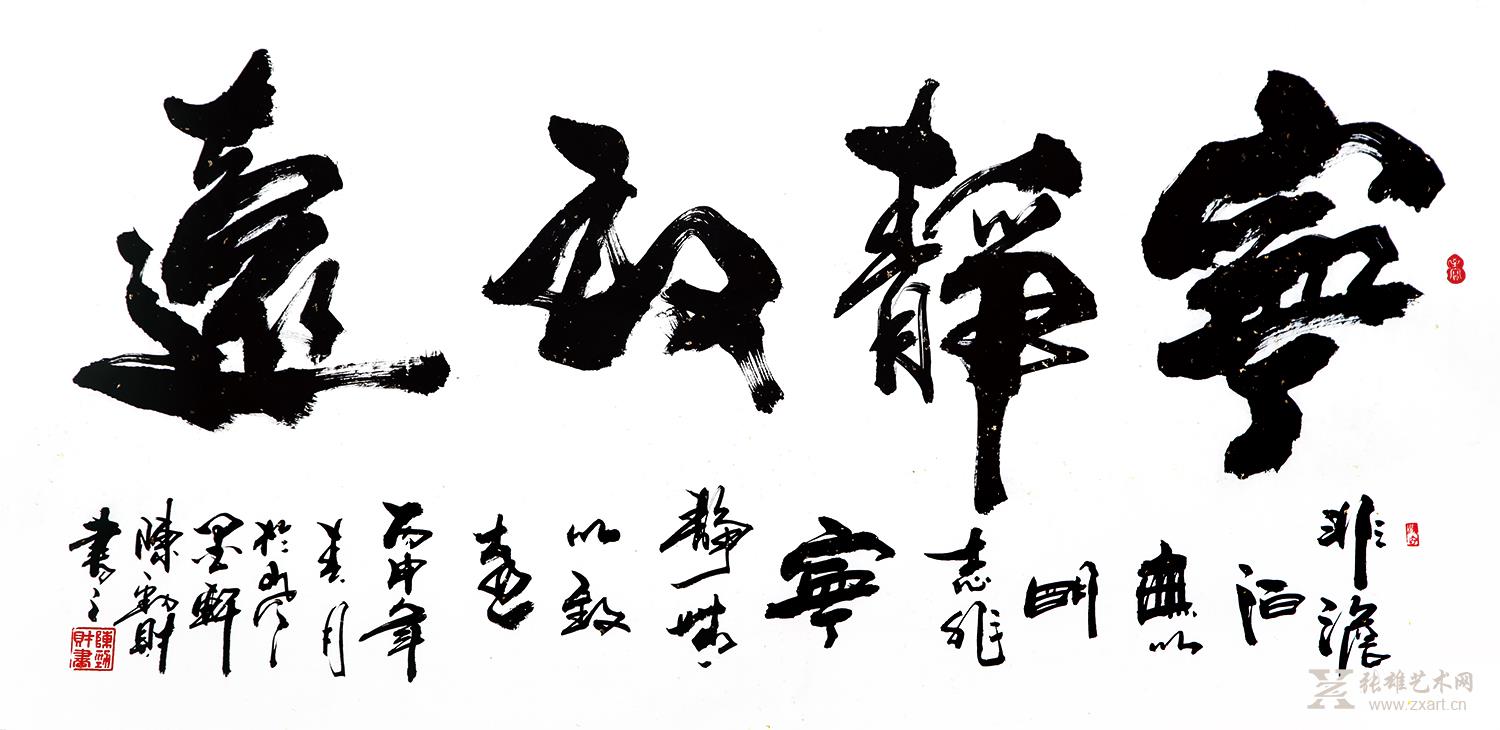 寧靜致遠
非澹
泊
無以
明
志非
寧
靜無
以致
遠
丙申年
春月
於山
墨軒
陳勁財
書之
陳勁財書
张雄艺术网
www.zxart.cn